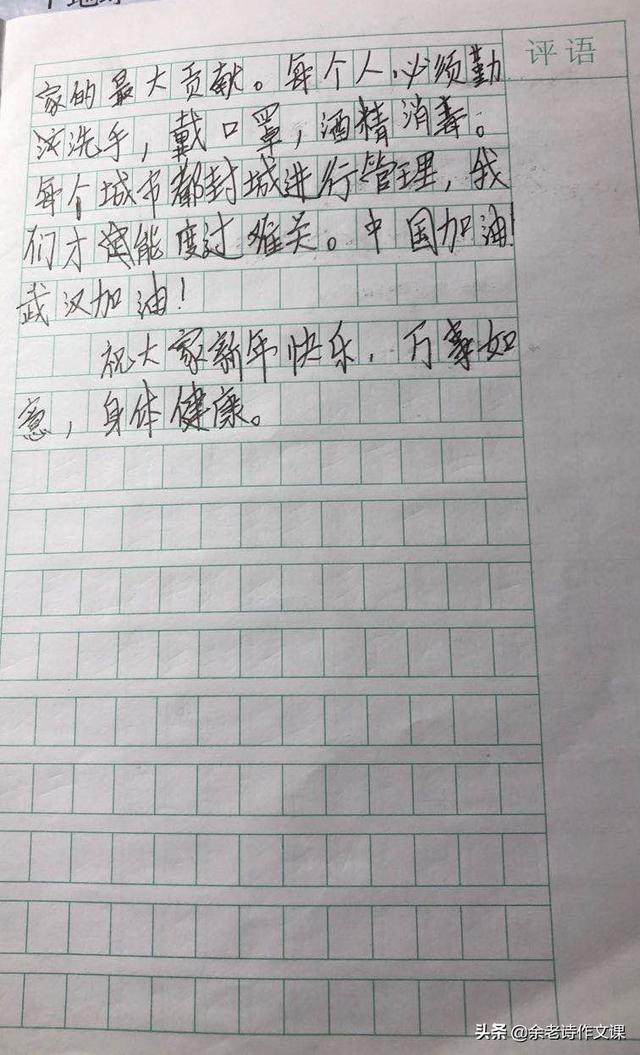 评语
家的最大贡献。每个人必须勤
洗手，戴口罩，酒精消毒。
每个城市都封城进行管理，我
们才能度过难关。中国加油！
武汉加油！
祝大家新年快乐，万事如
意，身体健康。
头条 @余老诗作文课